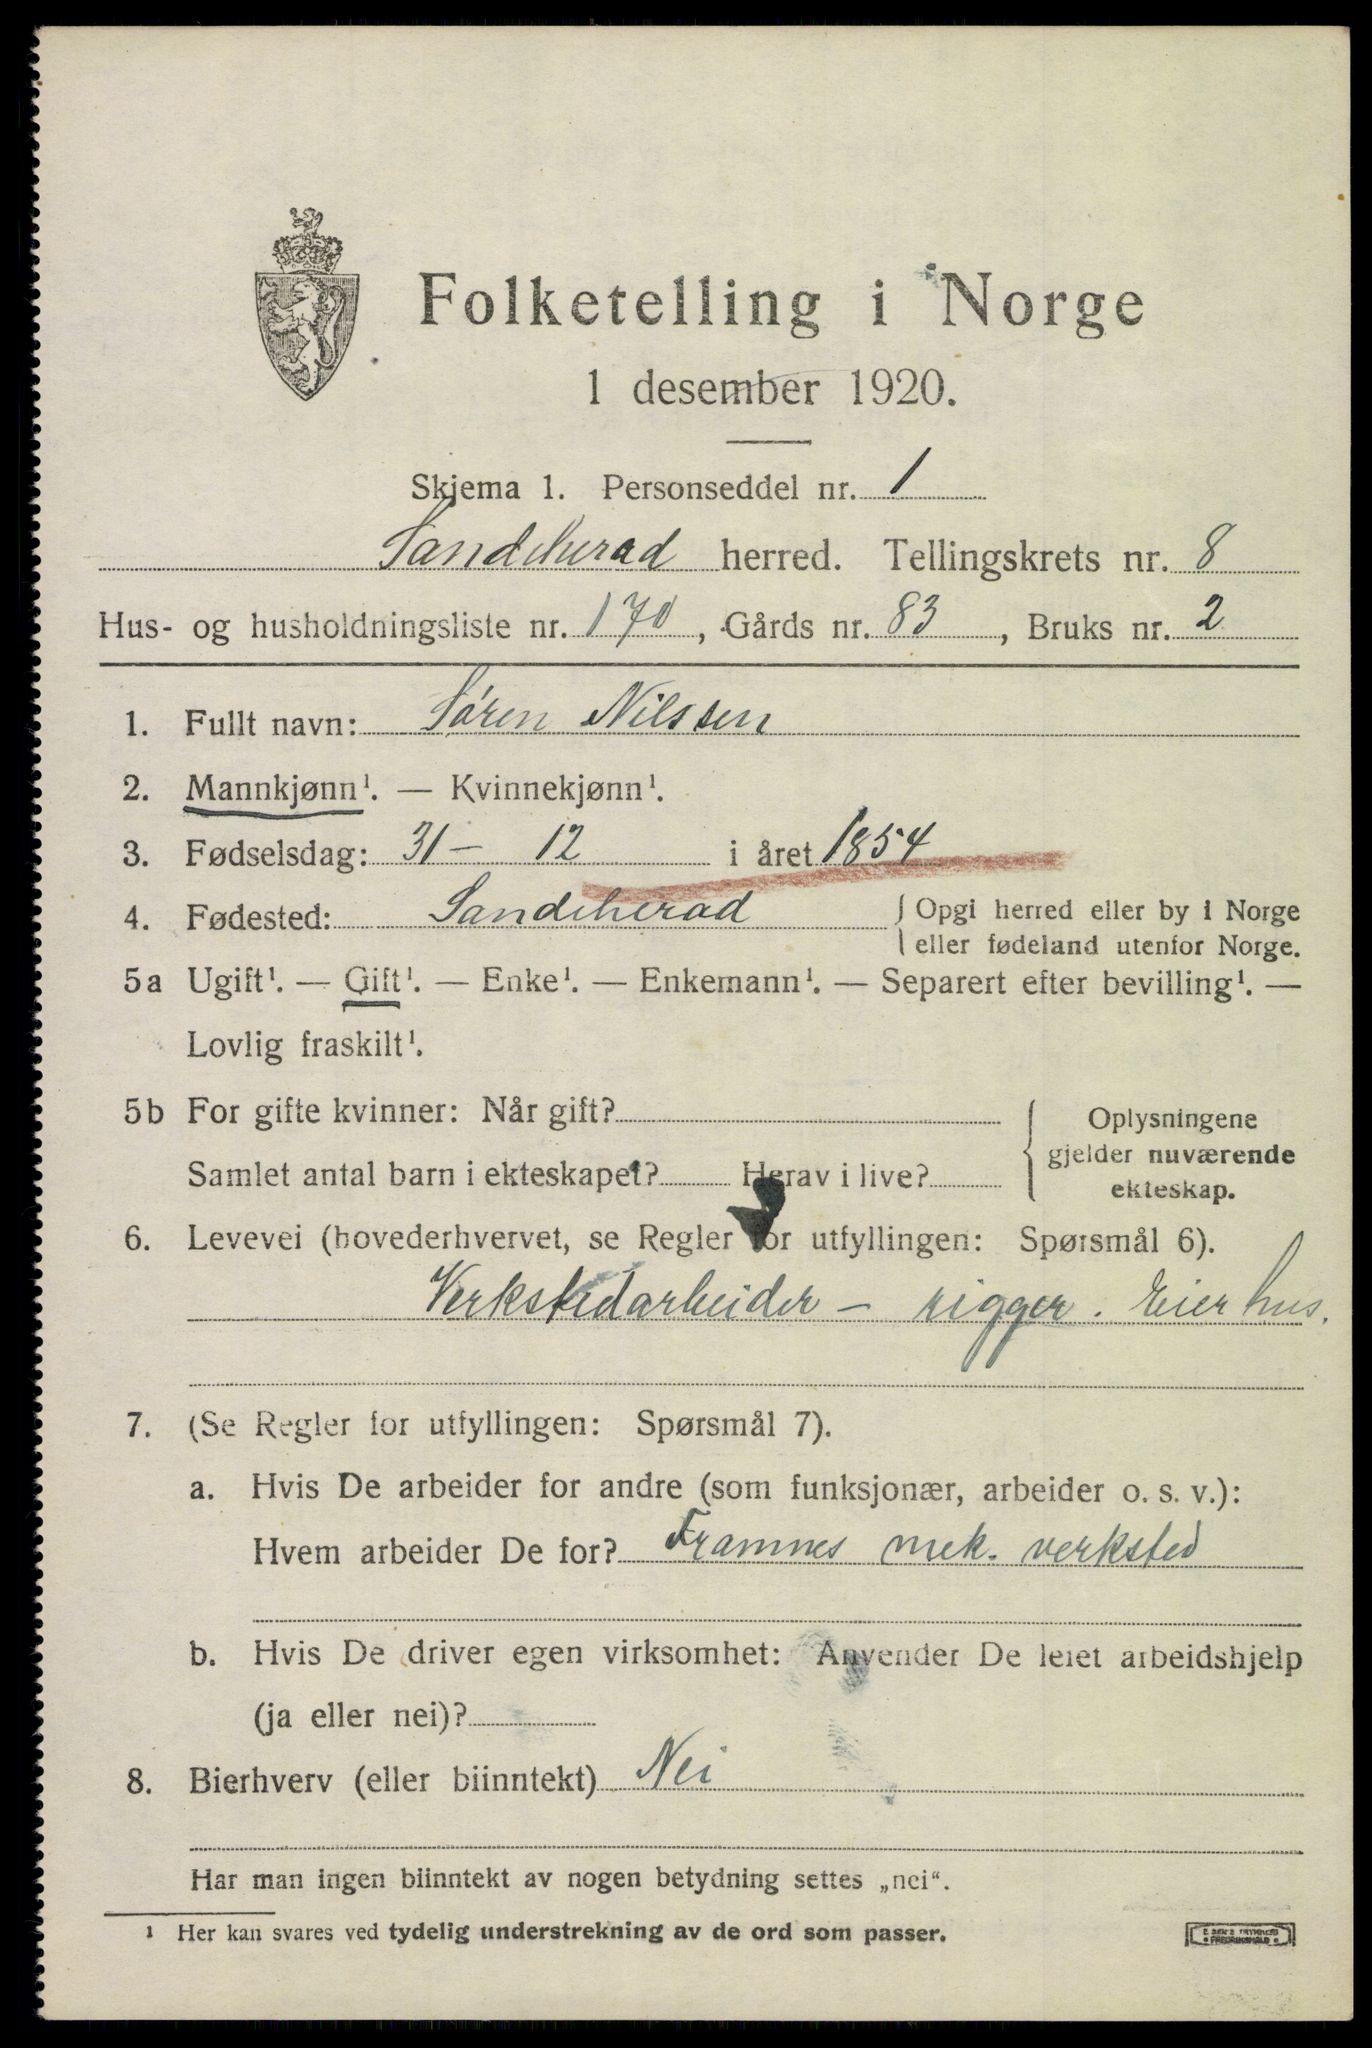 Folketelling i Norge
1 desember 1920.
Skjema 1. Personseddel nr. 1
Sandeherad herred. Tellingskrets nr. 8
Hus- og husholdningsliste nr. 170, Gårds nr. 83, Bruks nr. 2
1. Fullt navn: Søren Nilssen
2. Mannkjønn¹. — Kvinnekjønn¹.
3. Fødselsdag: 31 – 12 i året 1854
4. Fødested: Sandeherad { Opgi herred eller by i Norge
eller fødeland utenfor Norge.
5a Ugift¹. — Gift¹. — Enke¹. — Enkemann¹. — Separert efter bevilling¹. —
Lovlig fraskilt¹.
5b For gifte kvinner: Når gift?
Samlet antal barn i ekteskapet? Herav i live?
{ Oplysningene
gjelder nuværende
ekteskap.
6. Levevei (hovederhvervet, se Regler for utfyllingen: Spørsmål 6).
Verkstedarbeider – rigger. Eier hus.
7. (Se Regler for utfyllingen: Spørsmål 7).
a. Hvis De arbeider for andre (som funksjonær, arbeider o. s. v.):
Hvem arbeider De for? Framnes mek. verksted
b. Hvis De driver egen virksomhet: Anvender De leiet arbeidshjelp
(ja eller nei)?
8. Bierhverv (eller biinntekt) Nei
Har man ingen biinntekt av nogen betydning settes „nei“.
¹ Her kan svares ved tydelig understrekning av de ord som passer.